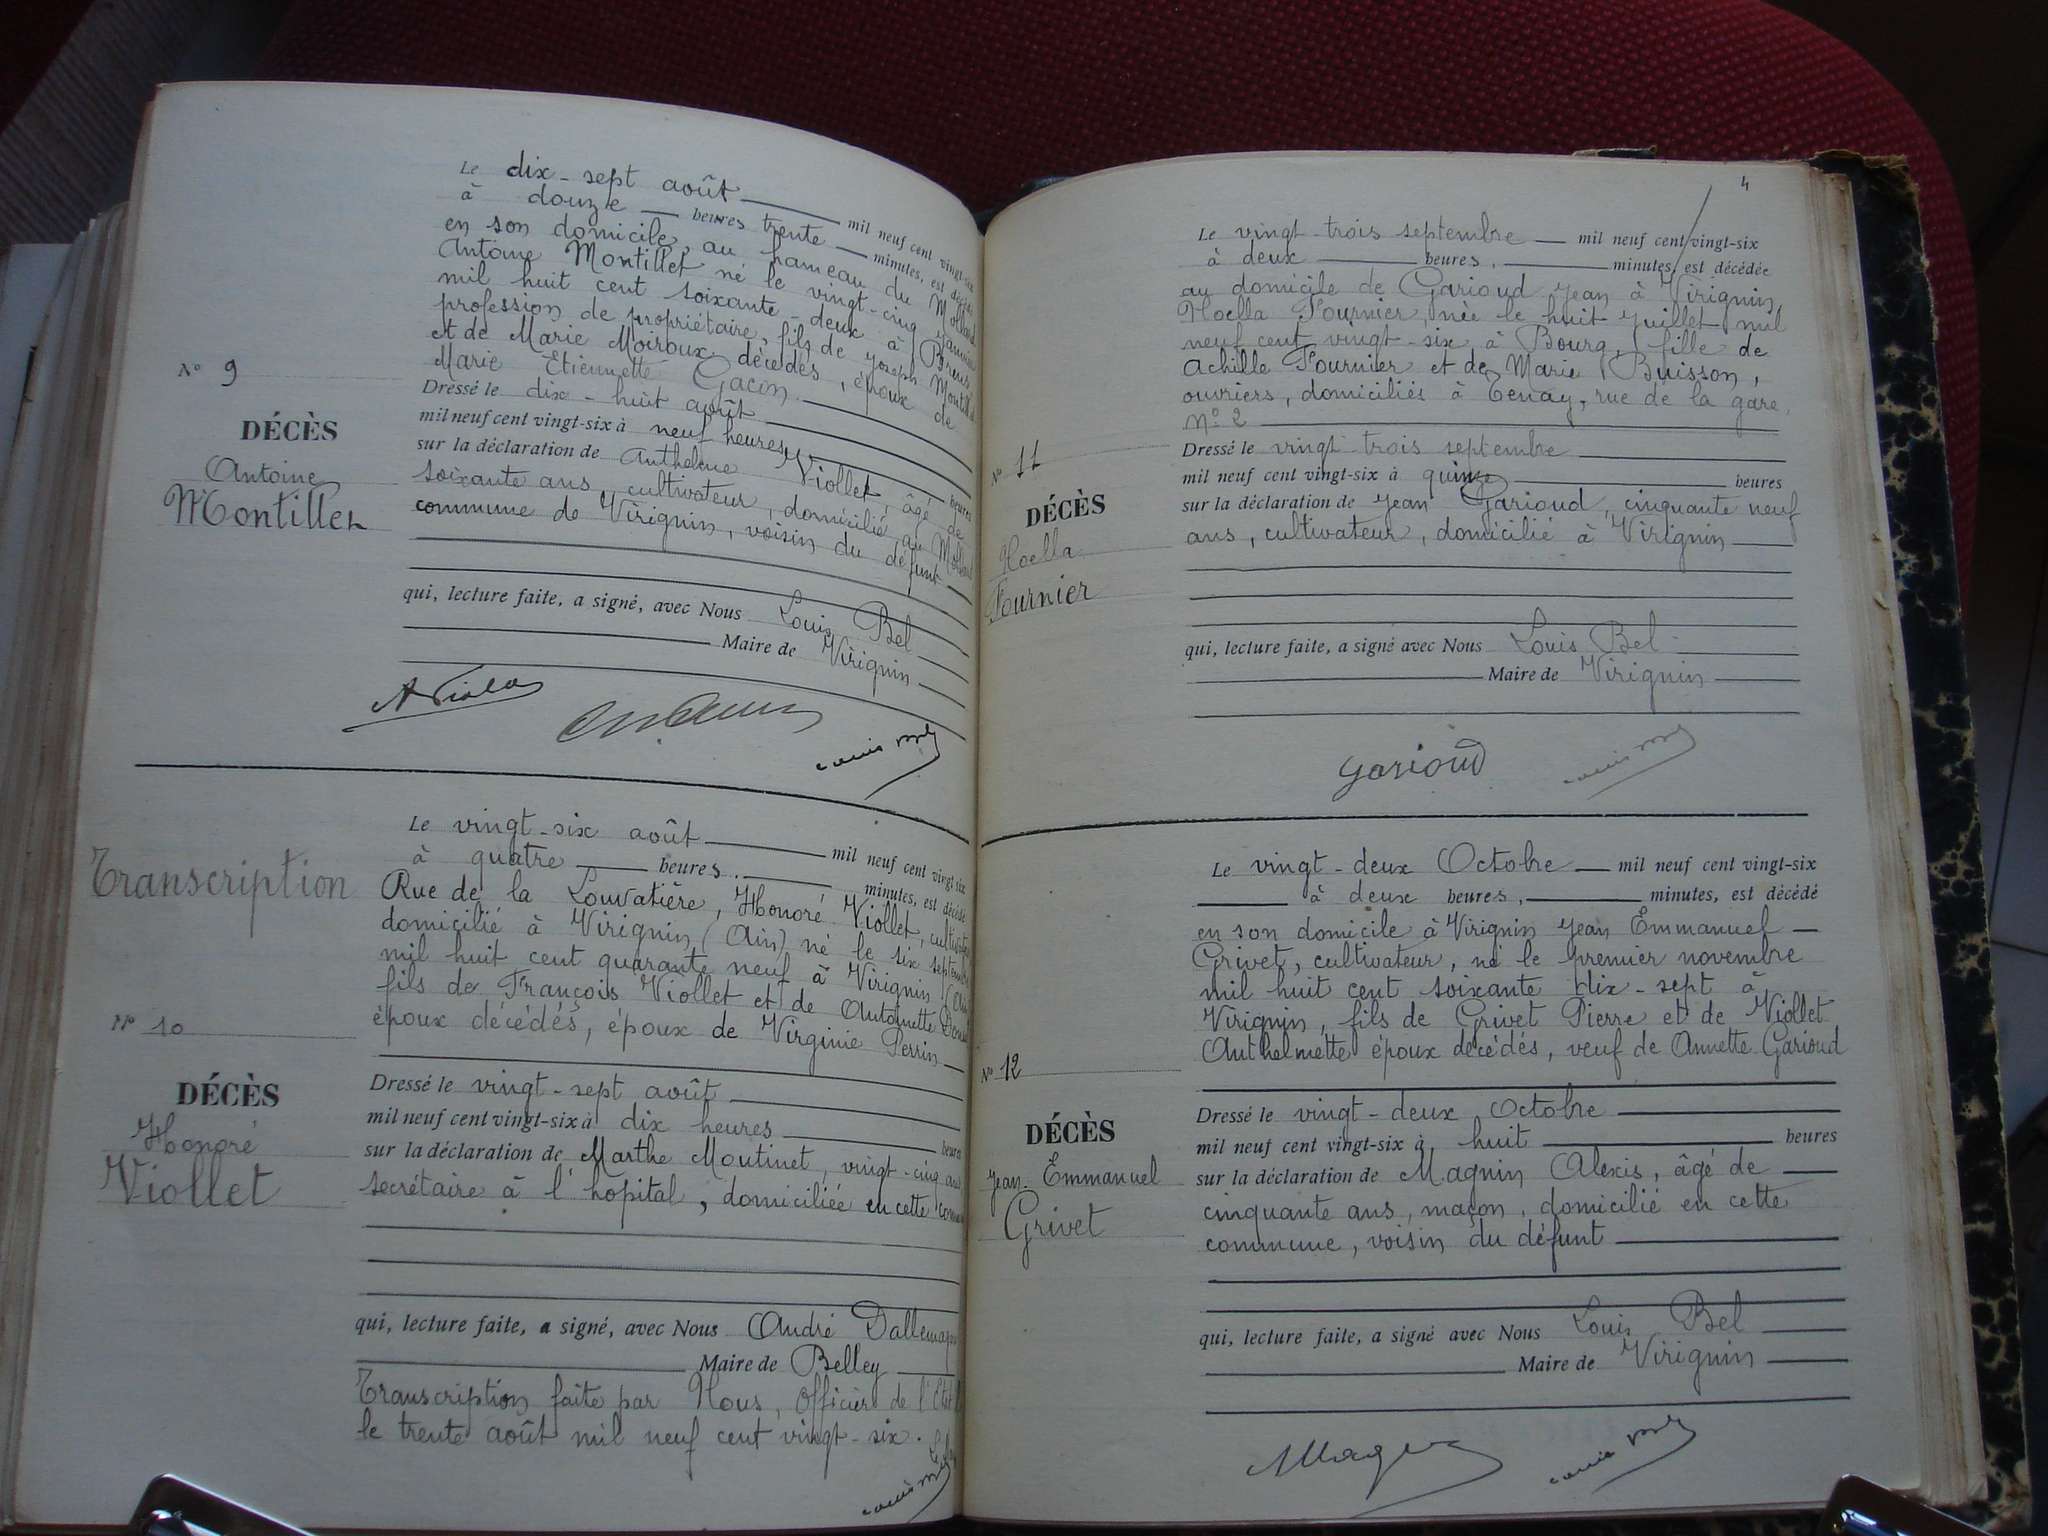 Le dix-sept août mil neuf cent vingt-six
à douze heures trente minutes, est décédé
en son domicile, au hameau du Mollard
Antoine Montillet né le vingt-cinq janvier
mil huit cent soixante-deux à Brens
profession de propriétaire, fils de Joseph Montillet
et de Marie Moiroux décédés, époux de
Marie Etiennette Gacon
No 9
DÉCÈS
Antoine
Montillet
Dressé le dix-huit août
mil neuf cent vingt-six à neuf heures heures
sur la déclaration de Anthelme Viollet, âgé de
soixante ans, cultivateur, domicilié au Mollard
commune de Virignin, voisin du défunt
qui, lecture faite, a signé, avec Nous Louis Bel
Maire de Virignin
A Violet
Louis Bel
Transcription
Le vingt-six août mil neuf cent vingt-six
à quatre heures, minutes, est décédé
Rue de la Louvatière, Honoré Viollet, cultivateur
domicilié à Virignin (Ain) né le six septembre
mil huit cent quarante neuf à Virignin (Ain)
fils de François Viollet et de Antoinette
époux décédés, époux de Virginie Perrin
No 10
DÉCÈS
Honoré
Viollet
Dressé le vingt-sept août
mil neuf cent vingt-six à dix heures heures
sur la déclaration de Marthe Moutinet, vingt-cinq ans
secrétaire à l'hopital, domiciliée en cette commune
qui, lecture faite, a signé, avec Nous André Dallemagne
Maire de Belley
Transcription faite par Nous, Officier de l'Etat
le trente août mil neuf cent vingt-six.
Louis Bel
4
Le vingt-trois septembre mil neuf cent vingt-six
à deux heures, minutes, est décédée
au domicile de Garioud Jean à Virignin
Noella Fournier, née le huit juillet mil
neuf cent vingt-six, à Bourg, fille de
Achille Fournier et de Marie Buisson,
ouvriers, domiciliés à Tenay, rue de la gare,
No 2
No 11
DÉCÈS
Noella
Fournier
Dressé le vingt-trois septembre
mil neuf cent vingt-six à quinze heures
sur la déclaration de Jean Garioud, cinquante neuf
ans, cultivateur, domicilié à Virignin
qui, lecture faite, a signé avec Nous Louis Bel
Maire de Virignin
Garioud
Louis Bel
Le vingt-deux Octobre mil neuf cent vingt-six
à deux heures, minutes, est décédé
en son domicile à Virignin Jean Emmanuel
Grivet, cultivateur, né le premier novembre
mil huit cent soixante dix-sept à
Virignin, fils de Grivet Pierre et de Viollet
Anthelmette époux décédés, veuf de Annette Garioud
No 12
DÉCÈS
Jean Emmanuel
Grivet
Dressé le vingt-deux Octobre
mil neuf cent vingt-six à huit heures
sur la déclaration de Magnin Alexis, âgé de
cinquante ans, maçon, domicilié en cette
commune, voisin du défunt
qui, lecture faite, a signé avec Nous Louis Bel
Maire de Virignin
Louis Bel